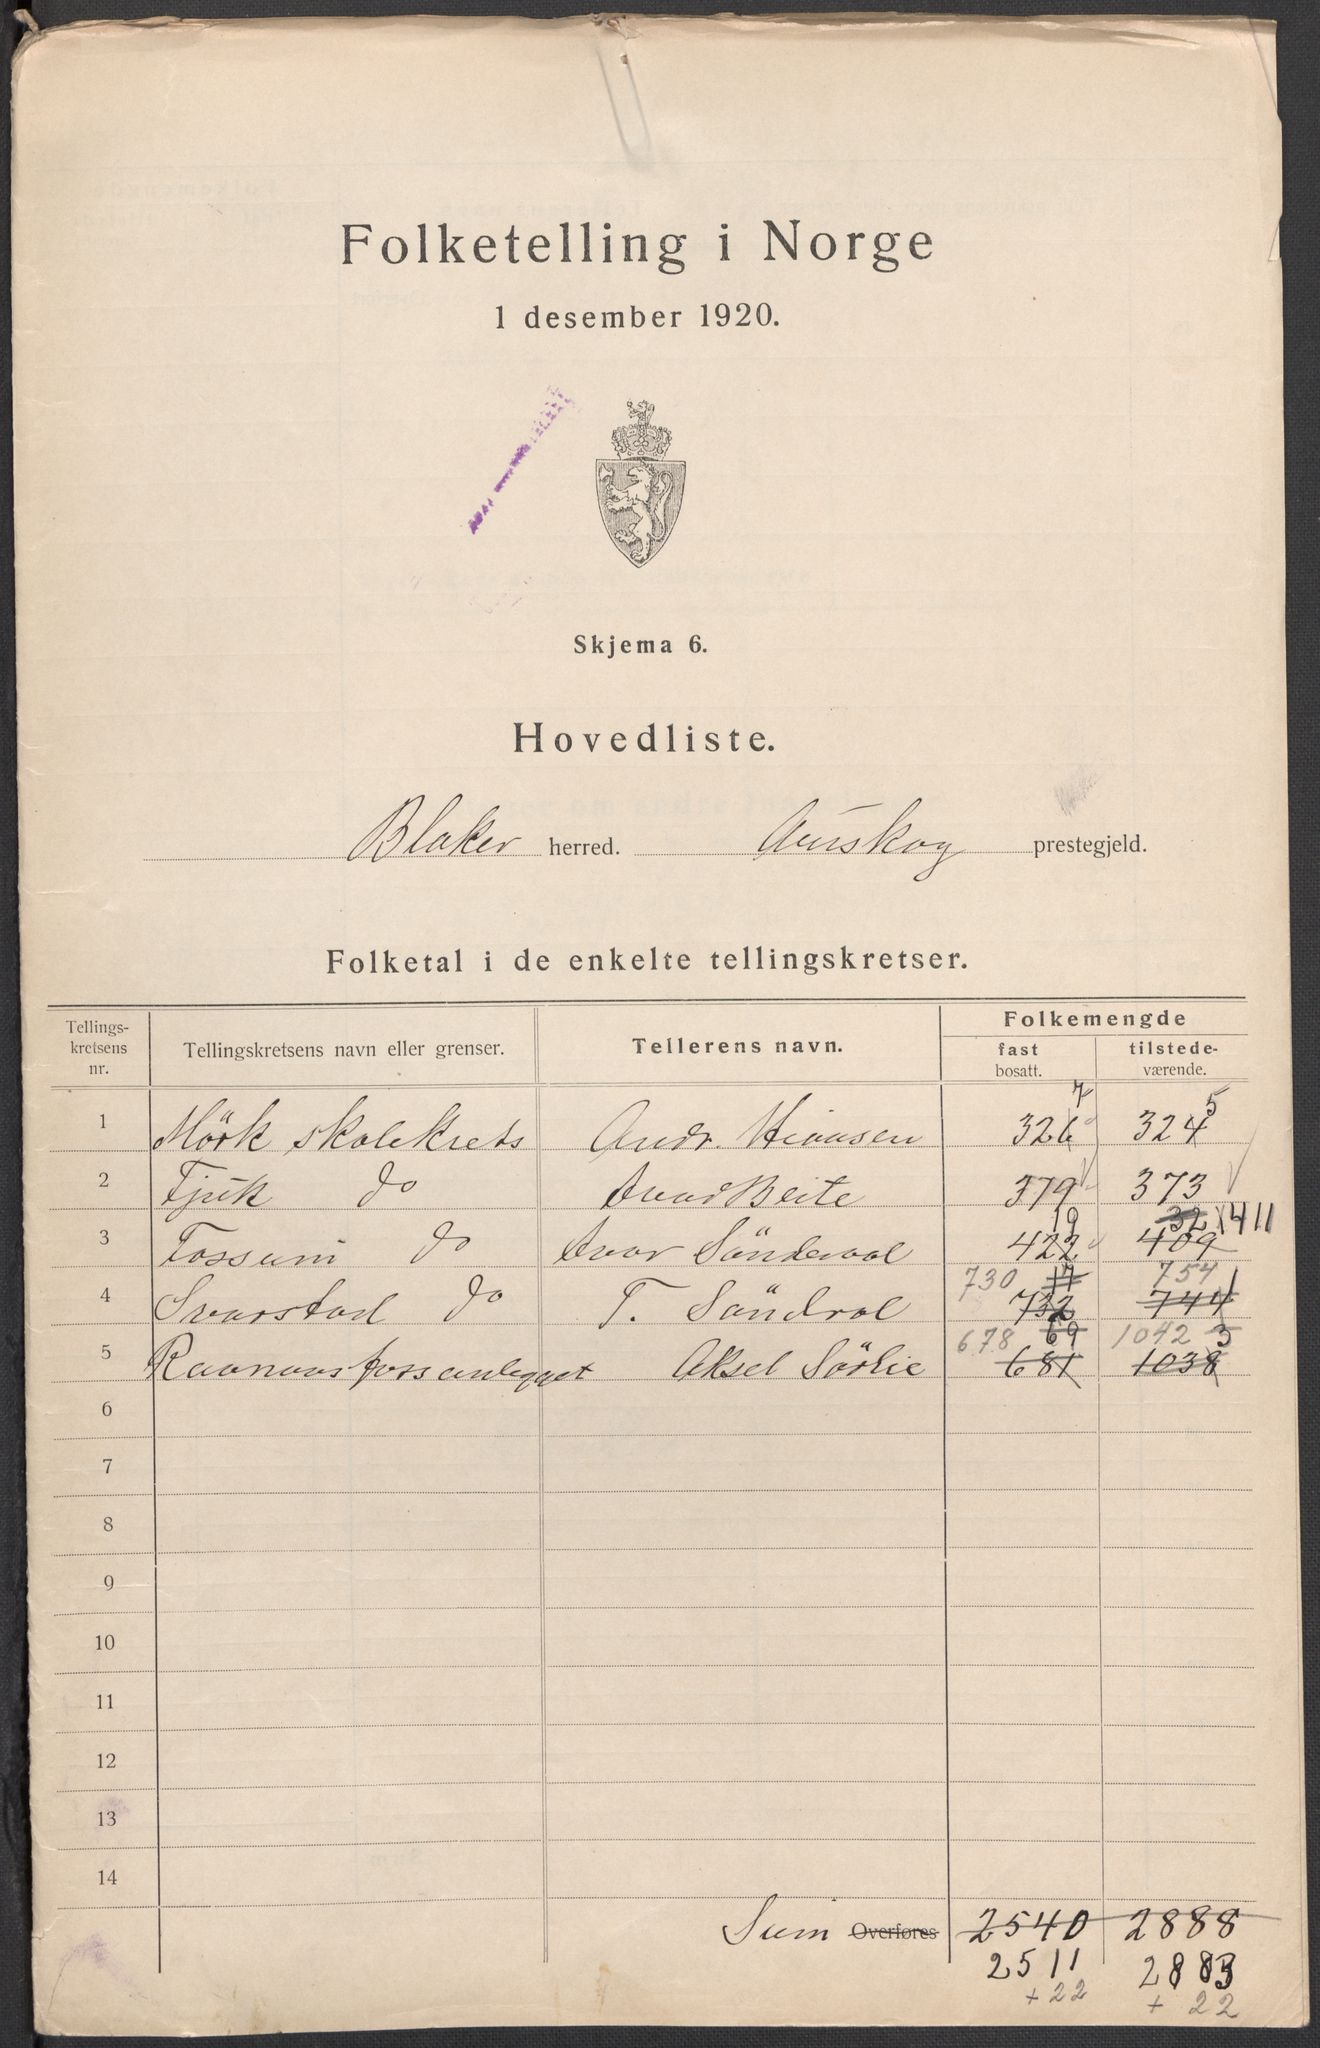 Folketelling i Norge
1 desember 1920.
Skjema 6.
Hovedliste.
Blaker herred. Aurskog prestegjeld.
Folketal i de enkelte tellingskretser.
Tellings-kretsens nr. Tellingskretsens navn eller grenser. Tellerens navn. Folkemengde
fast bosatt. tilstede-værende.
7 5
1 Mörk skolekrets Andr. Hansen 326 324
2 Tjuk do 379 373
19 32 411
3 Fossum do Ivar Sönderaal 422 409
730 17 754
4 Svarstad do T. Söndral 732 744
678 69 1042 3
5 Raanaasfossanlegget Aksel Sörlie 681 1038
6
7
8
9
10
11
12
13
14
Sum Overføres 2540 2888
2511 2883
+22 + 22